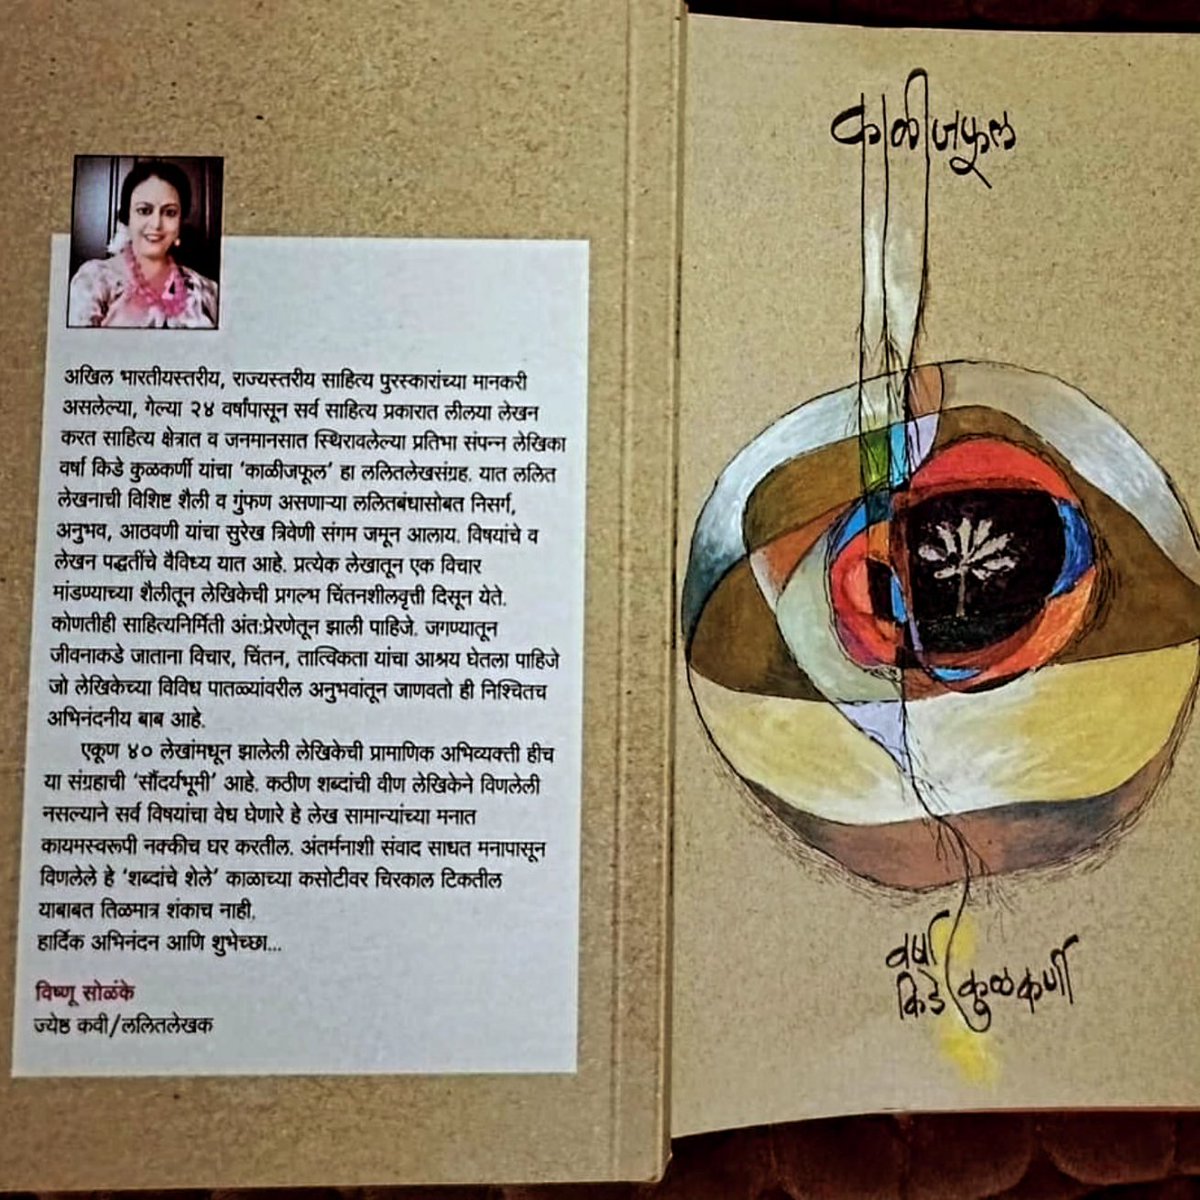 अखिल भारतीयस्तरीय, राज्यस्तरीय साहित्य पुरस्कारांच्या मानकरी
असलेल्या, गेल्या २४ वर्षांपासून सर्व साहित्य प्रकारात लीलया लेखन
करत साहित्य क्षेत्रात व जनमानसात स्थिरावलेल्या प्रतिभा संपन्न लेखिका
वर्षा किडे कुळकर्णी यांचा ‘काळीजफूल’ हा ललितलेखसंग्रह. यात ललित
लेखनाची विशिष्ट शैली व गुंफण असणाऱ्या ललितबंधासोबत निसर्ग,
अनुभव, आठवणी यांचा सुरेख त्रिवेणी संगम जमून आलाय. विषयांचे व
लेखन पद्धतींचे वैविध्य यात आहे. प्रत्येक लेखातून एक विचार
मांडण्याच्या शैलीतून लेखिकेची प्रगल्भ चिंतनशीलवृत्ती दिसून येते.
कोणतीही साहित्यनिर्मिती अंत:प्रेरणेतून झाली पाहिजे. जगण्यातून
जीवनाकडे जाताना विचार, चिंतन, तात्विकता यांचा आश्रय घेतला पाहिजे
जो लेखिकेच्या विविध पातळ्यांवरील अनुभवांतून जाणवतो ही निश्चितच
अभिनंदनीय बाब आहे.
एकूण ४० लेखांमधून झालेली लेखिकेची प्रामाणिक अभिव्यक्ती हीच
या संग्रहाची ‘सौंदर्यभूमी’ आहे. कठीण शब्दांची वीण लेखिकेने विणलेली
नसल्याने सर्व विषयांचा वेध घेणारे हे लेख सामान्यांच्या मनात
कायमस्वरूपी नक्कीच घर करतील. अंतर्मनाशी संवाद साधत मनापासून
विणलेले हे ‘शब्दांचे शेले’ काळाच्या कसोटीवर चिरकाल टिकतील
याबाबत तिळमात्र शंकाच नाही.
हार्दिक अभिनंदन आणि शुभेच्छा...
विष्णू सोळंके
ज्येष्ठ कवी/ललितलेखक
काळीजफूल
वर्षा
किडे कुळकर्णी